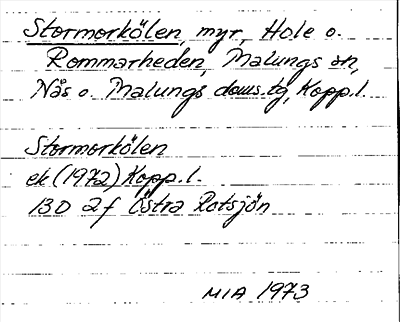 Stormorkölen, myr, Hole o.
Rommarheden, Malungs sn,
Nås o. Malungs doms.tg, Kopp.l.
Stormorkölen
ek (1972) Kopp.l.
13D 2f Östra Rotsjön
MIA 1973